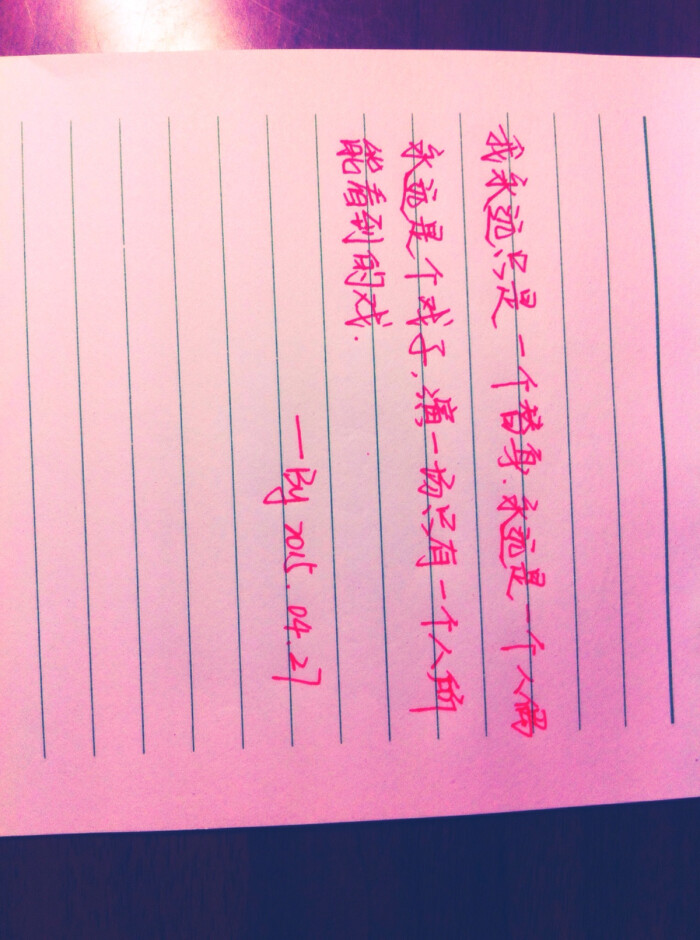 我永远只是一个替身.永远是一个人偶
永远是个戏子.演一场只有一个人所
能看到的戏.
—By 2015.04.27